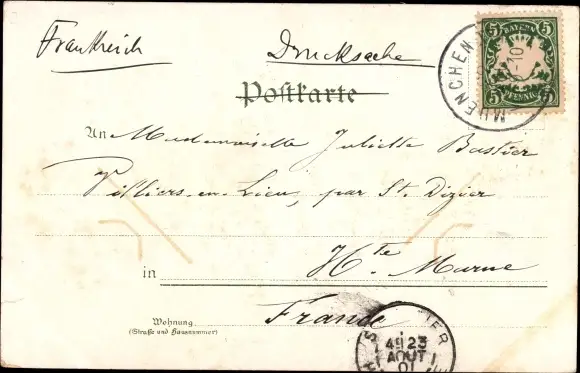 Frankreich
Drucksache
Postkarte
5 BAYERN 5
5 PFENNIG 5
MUENCHEN
An Mademoiselle Juliette Bastier
Villiers-en-Lieu, par St. Dizier
in Hte. Marne
France
Wohnung
(Straße und Hausnummer)
23
AOUT
01